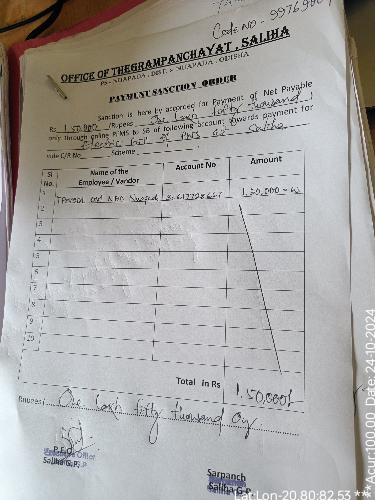 Code NO - 99769
OFFICE OF THEGRAMPANCHAYAT, SALIHA
PS- NUAPADA, DIST. - NUAPADA, ODISHA
PAYMENT SANCTION ORDER
Sanction is here by accorded for Payment of Net Payable
Rs 1,50,000 /Rupees One Lakh fifty thousand
only through online PFMS to SB of following account towards payment for
Electric bill of PWS at Saliha
vide C/R No Scheme
Sl No. Name of the Employee / Vandor Account No Amount
1 1,50,000 = 00
2
3
4
5
6
7
8
9
10
Total in Rs 1,50,000/-
Rupees/ One Lakh fifty thousand only
P.E.O.
Saliha G.P.
Sarpanch
Saliha G.P.
Lat Lon-20.80:82.53 *** Acur:100.00 Date: 24-10-2024